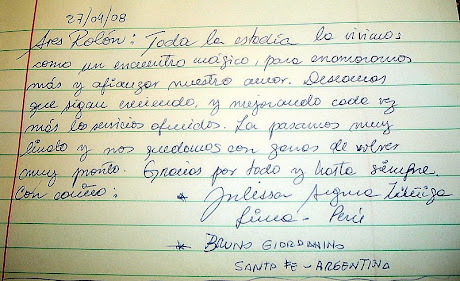 27/04/08
Sres Rolón: Toda la estadía la vivimos
como un encuentro mágico, para enamorarnos
más y afianzar nuestro amor. Deseamos
que sigan creciendo, y mejorando cada vez
más los servicios ofrecidos. La pasamos muy
lindo y nos quedamos con ganas de volver
muy pronto. Gracias por todo y hasta siempre.
Con cariño: * Julissa
Lima - Perú
* BRUNO GIORDANINO
SANTA FE - ARGENTINA